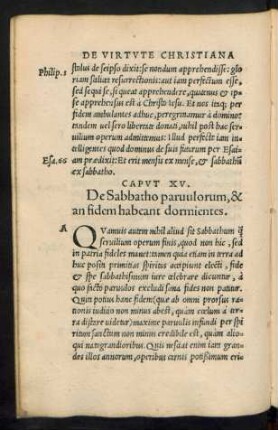 DE VIRTVTE CHRISTIANA
Philip.3 stolus de seipso dixit: se nondum apprehendisse: glo
riam scilicet resurrectionis: aut iam perfectum esse,
sed sequi se, si queat apprehendere, quatenus & ip-
se apprehensus est à Christo Iesu. Et nos itaq; per
fidem ambulantes adhuc, peregrinamur à domino:
tandem uel sero libertate donati, nihil post hac ser-
uilium operum admittimus: Illud perfecte iam in-
telligentes quod dominus de suis futurum per Esai-
Esa.66 am prædixit: Et erit mensis ex mense, & sabbathũ
ex sabbatho.
CAPVT XV.
De Sabbatho paruulorum, &
an fidem habeant dormientes.
A
QVamuis autem nihil aliud sit Sabbathum q̃
seruilium operum finis, quod non hic, sed
in patria fideles manet: tamen quia etiam in terra ad
huc positi primitias spiritus accipiunt electi, fide
& spe sabbathismum iure celebrare dicuntur, à
quo sicti paruulos excludi sona fides non patitur.
Quin potius hanc fidem (quæ ab omni prorsus ra-
tionis iudicio non minus abest, quàm cœlum à ter-
ra distare uidetur) maxime paruulis infundi per spi
ritum sanctum non minus credibile est, quàm alio-
qui natu grandioribus. Quin nescit enim iam gran-
des illos annorum, operibus carnis potissimum eru-